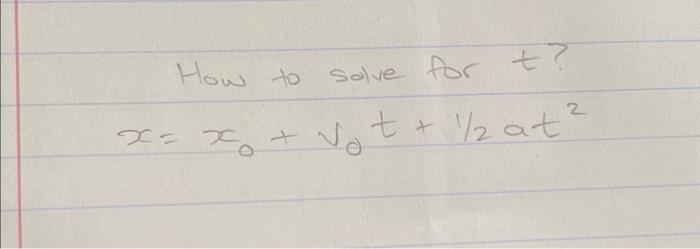 How to solve for t?
x = x₀ + v₀t + 1/2 at²